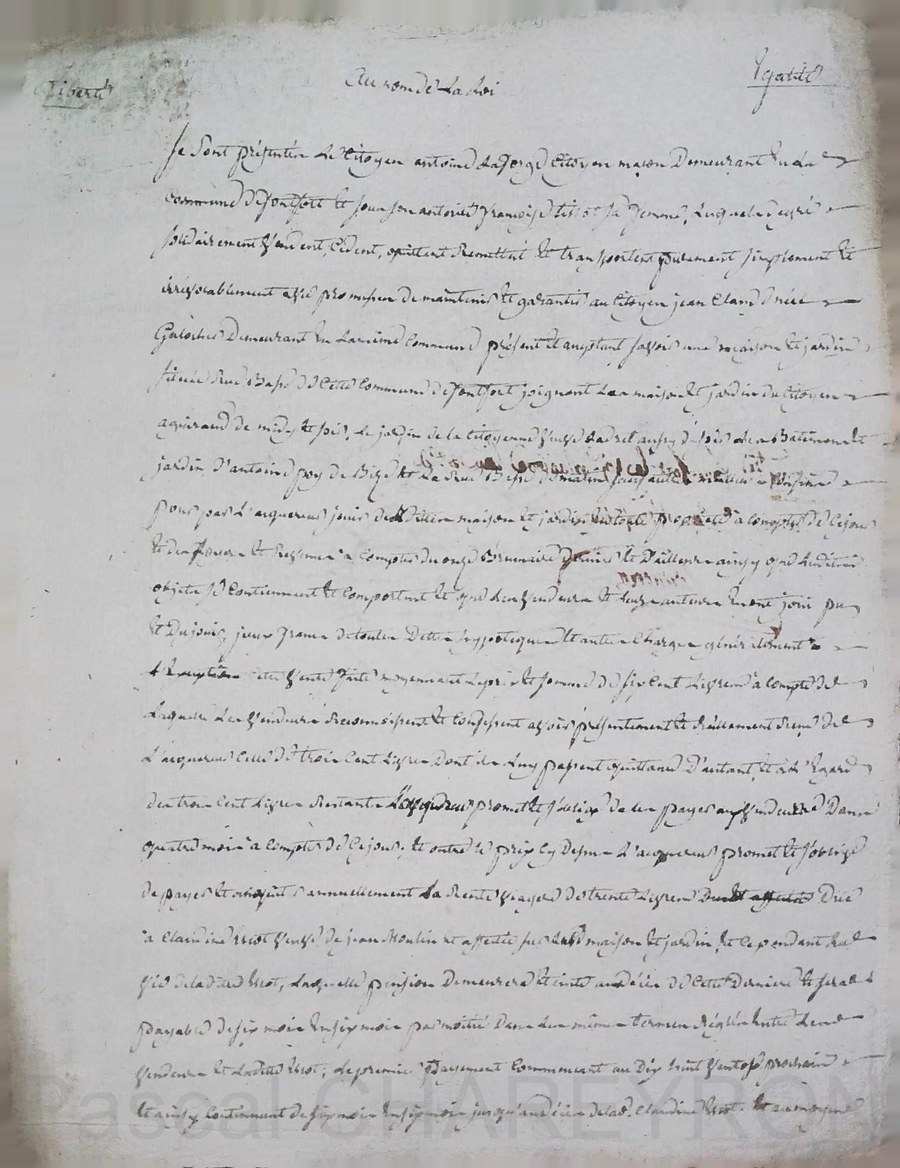 Liberté Au nom de la Loi Egalité
Se sont présentés Le Citoyen antoine Citoyen maçon Demeurant En La
Commune de Montfort et sous son autorité françoise tissot sa femme, Lesquels de gré
solidairement Vendent, Cedent, quittent Remettent et transportent purement simplement et
irrévocablement avec promesse de maintenir et garantir au Citoyen jean Claude
Demeurant En La même Commune présent et acceptant savoir une maison et jardin
située Rue Basse de Cette Commune de Montfort joignant La maison et jardin du Citoyen
de midy et soir, Le jardin de la Citoyenne Veuve aussy de soir Les Batiment et
jardin D'antoine de Bize et La Rue Basse de matin sauf autres
pour par L'acquereur jouir desdites maison et jardin en toute propriété à Compter de Ce jour
et des à Compter du onze Brumaire Dernier et D'ailleurs ainsy que Lesdits
objets se Contiennent et Comportent et que Les Vendeurs et Leurs auteurs En ont joui pu
et Du jouir, francs de toutes Dettes hypoteques et autres Charges généralement
Cette Vente faite moyennant Le prix et somme de six Cent Livres à Compte de
Laquelle Les Vendeurs Reconnoissent et Confessent avoir présentement et Réellement Reçu de
L'acquereur Celle de trois Cent Livres Dont ils Luy passent quittance D'autant, et à L'Egard
des trois Cent Livres Restantes L'acquereur promet et s'oblige de les payer aux Vendeurs Dans
quatre mois à Compter de Ce jour, et outre Le prix Cy Dessus L'acquereur promet et s'oblige
de payer et annuellement La Rente Viagere de trente Livres Due
à Claudine Veuve de jean Moulin et affectée sur Lesd. maison et jardin, et Ce pendant La
Vie de ladite Laquelle pension Demeurera Eteinte au décès de Cette Derniere et sera
payable de six mois En six mois par moitié Dans Les mêmes termes Réglés Entre Les
Vendeurs et Ladite Le premier Payement Commencant au Dix huit Ventose prochain
et ainsy Continuant de six mois En six mois jusqu'au décès de lad. Claudine et au moyen
Pascal CHAREYRON